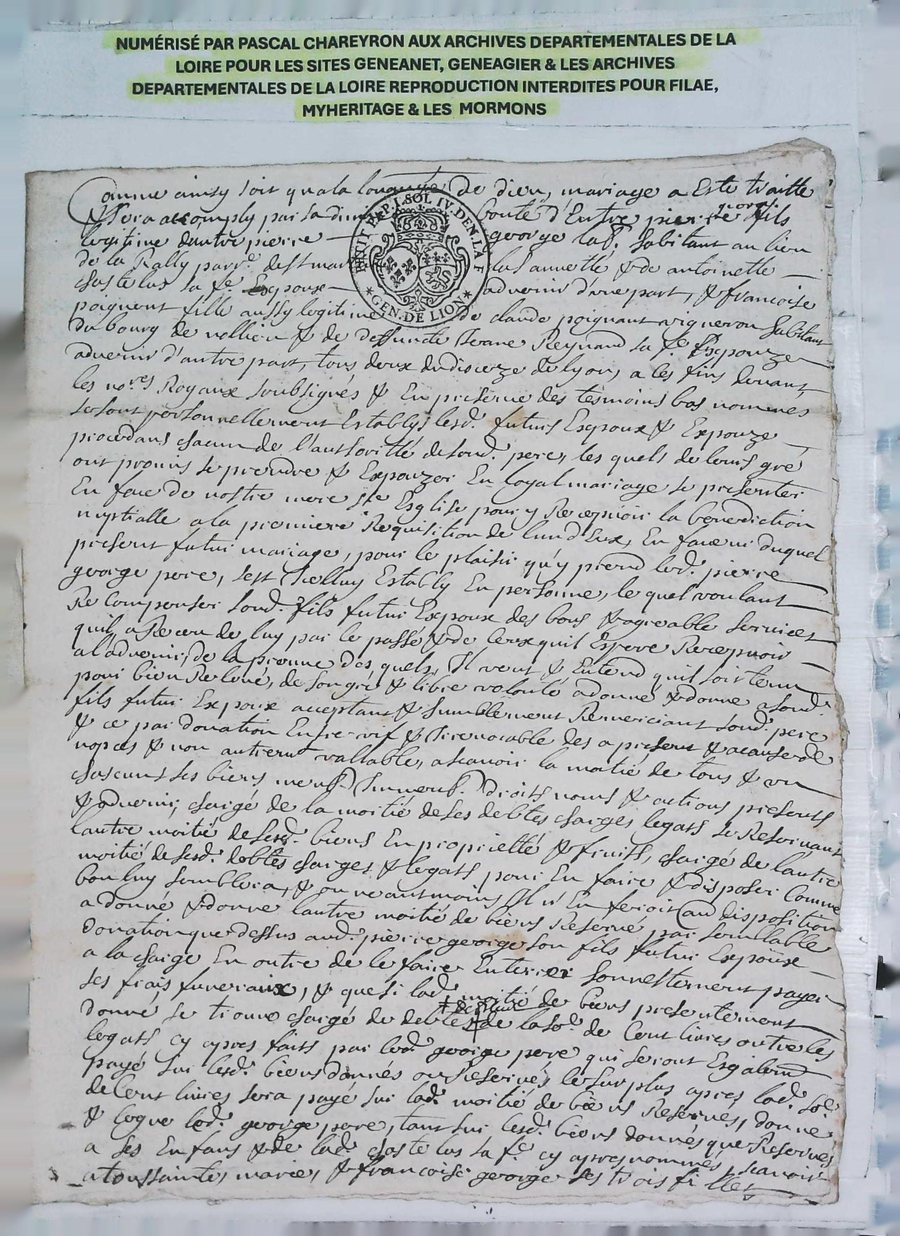 NUMÉRISÉ PAR PASCAL CHAREYRON AUX ARCHIVES DEPARTEMENTALES DE LA
LOIRE POUR LES SITES GENEANET, GENEAGIER & LES ARCHIVES
DEPARTEMENTALES DE LA LOIRE REPRODUCTION INTERDITES POUR FILAE,
MYHERITAGE & LES MORMONS
Comme ainsy soit qu'a la louange de dieu, mariage a Esté traitté
& sera accomply par sa divine bonté d'Entre pierre george fils
legitime d'autre pierre george lab.r habitant au lieu
de la parr.e de st & de antoinette
Chastelus sa fe. Espouse advenir d'une part, & francoise
poignent fille aussy legitime de claude poignant vigneron habitant
du bourg de & de deffuncte Jeane Reynaud sa fe. Espouze
advenir d'autre part, tous deux du dioceze de lyon, a les fins devant
les no.res Royaux soubsignés & En presence des tesmoins bas nommés
se sont personnellement Establys lesd. futurs Espoux & Espouze
procedans chacun de l'authoritté de sond. pere, les quels de leurs gré
ont promis se prendre & Espouzer En loyal mariage se presenter
En face de nostre mere Ste Esglise pour y Recepvoir la benediction
nuptialle a la premiere Requisition de l'un d'Eux, En faveur duquel
present futur mariage, pour le plaisir qu'y prend led. pierre
george pere, s'est Icelluy Estably En personne, le quel voulant
Recompenser sond. fils futur Espoux des bons & agreable services
quil a Receu de luy par le passé & de ceux quil Espere Recepvoir
a l'advenir, de la preuve des quels, Il veut & Entend quil soit tenu
pour bien Relevé, de son gré & libre volonté a donné & donne a sond.
fils futur Espoux acceptant & humblement Remerciant sond. pere
& ce par donation Entre vif & Irrevocable des a present & a cause de
nopces & non autrem.t vallable, a scavoir la moitié de tous & un
chascuns ses biens meub. Immeub. Droits noms & actions presents
& advenir, chargé de la moitié de ses debtes charges legats se Reservant
l'autre moitié de sesd. biens En proprietté & fruits, chargé de l'autre
moitié de sesd. debtes charges & legats pour En faire & disposer Comme
bon luy semblera, & ou neantmoins Il n'En feroit disposition
a donné & donne l'autre moitié de biens Reservé par semblable
donation que dessus aud. pierre george son fils futur Espoux
a la charge En outre de le faire Enterrer honnestement payer
ses frais funeraux, & que si lad. moitié de biens presentement
donné se trouve chargé de debtes de la so.e de Cent livres outre les
legats cy apres faits par led. george pere qui seront Esgalem.t
payé sur lesd. biens donnés ou Reservés le surplus apres lad. so.e
de Cent livres sera payé sur lad. moitié de biens Reservés, donne
& legue led. george pere, tant sur lesd. biens donnés que Reservés
a ses Enfans & de lad. chastelus sa fe. cy apres nommés, scavoir
a toussainte, marie, & francoise george ses trois filles